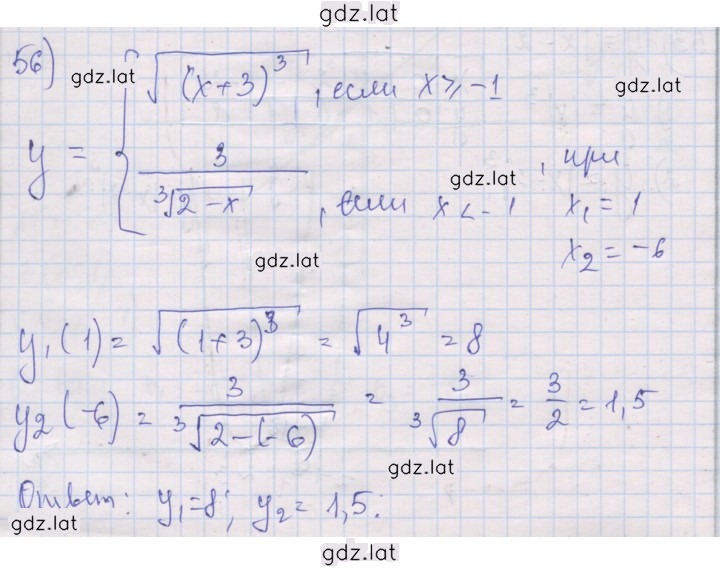 gdz.lat
56) gdz.lat
y = { √(x+3)³, если x ≥ -1 gdz.lat
3/∛(2-x), если x < -1, при gdz.lat
x₁ = 1
x₂ = -6
gdz.lat
y₁(1) = √(1+3)³ = √4³ = 8
y₂(-6) = 3/∛(2-(-6)) = 3/∛8 = 3/2 = 1,5
gdz.lat
Ответ: y₁=8; y₂=1,5.
gdz.lat
gdz.lat